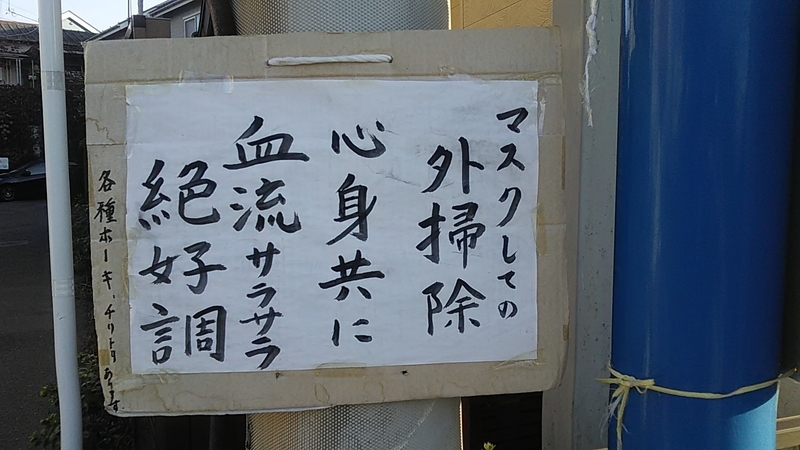 マスクしての
外掃除
心身共に
血流サラサラ
絶好調
各種ホーキ、チリトリあります